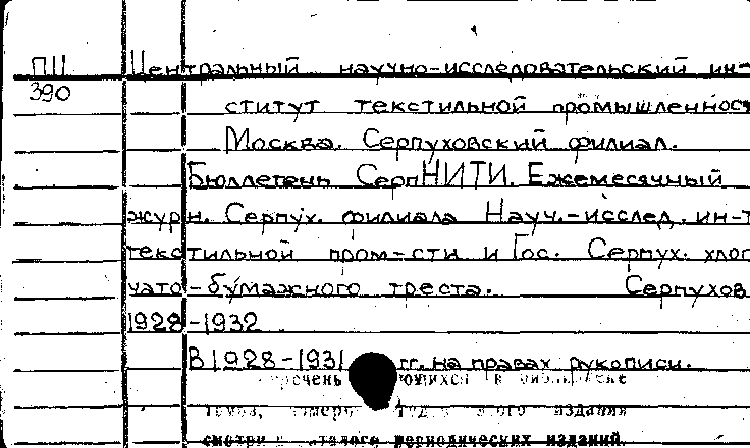 ПII Центральный научно-исследовательский ин-
390 ститут текстильной промышленнос
Москва. Серпуховский филиал.
Бюллетень СерпНИТИ. Ежемесячный
журн. Серпух. филиала Науч.-исслед. ин-т
текстильной пром-сти и Гос. Серпух. хлоп
чато-бумажного треста. Серпухов
1928-1932
В 1928-1931 гг. на правах рукописи.
издания
смотри периодических изданий.